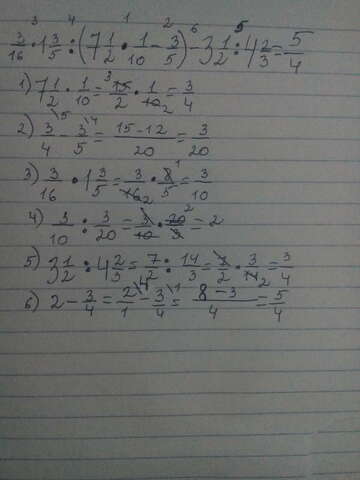 3 4 1 2 6 5
3/16 · 1 3/5 : (7 1/2 · 1/10 - 3/5) - 3 1/2 : 4 2/3 = 5/4
1) 7 1/2 · 1/10 = 15/2 · 1/10 = 3/4
2) 3/4 - 3/5 = 15-12/20 = 3/20
3) 3/16 · 1 3/5 = 3/16 · 8/5 = 3/10
4) 3/10 : 3/20 = 3/10 · 20/3 = 2
5) 3 1/2 : 4 2/3 = 7/2 : 14/3 = 7/2 · 3/14 = 3/4
6) 2 - 3/4 = 2/1 - 3/4 = 8-3/4 = 5/4